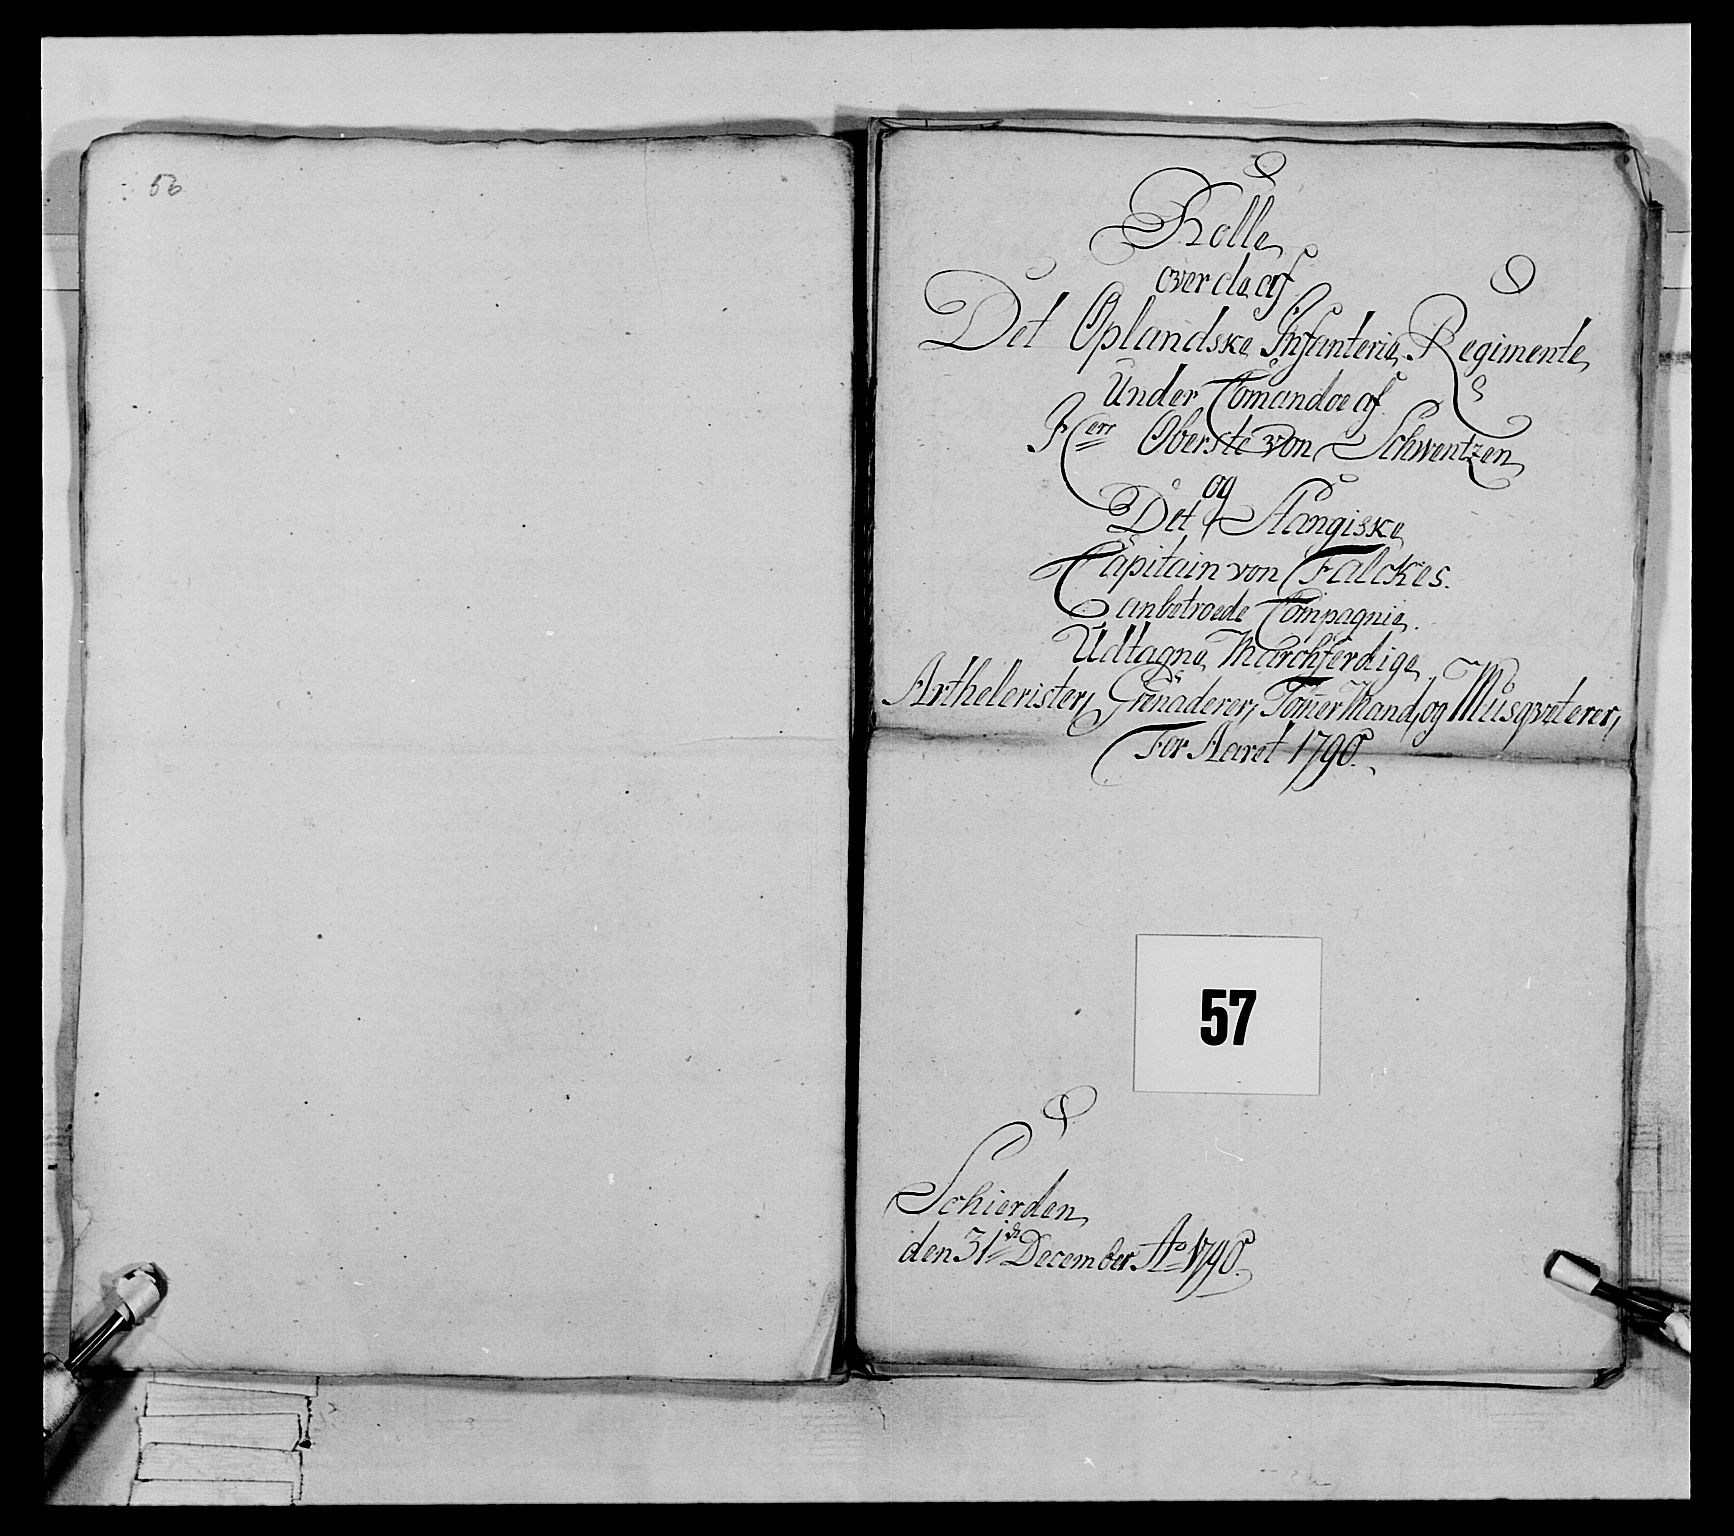 56
Rolle
over de af
Det Oplandske Infanterie Regimente
Under Comandoe af
Herr Oberste von Schwentzen
og
Det Stangiske
Capitain von Falckes.
anbetroede Compagnie.
Udtagne Marchferdige
Arthelerister, Grenaderer, Tømer Mand, og Musqveterer,
For Aaret 1790.
57
Schierden
den 31te December Ao 1790.